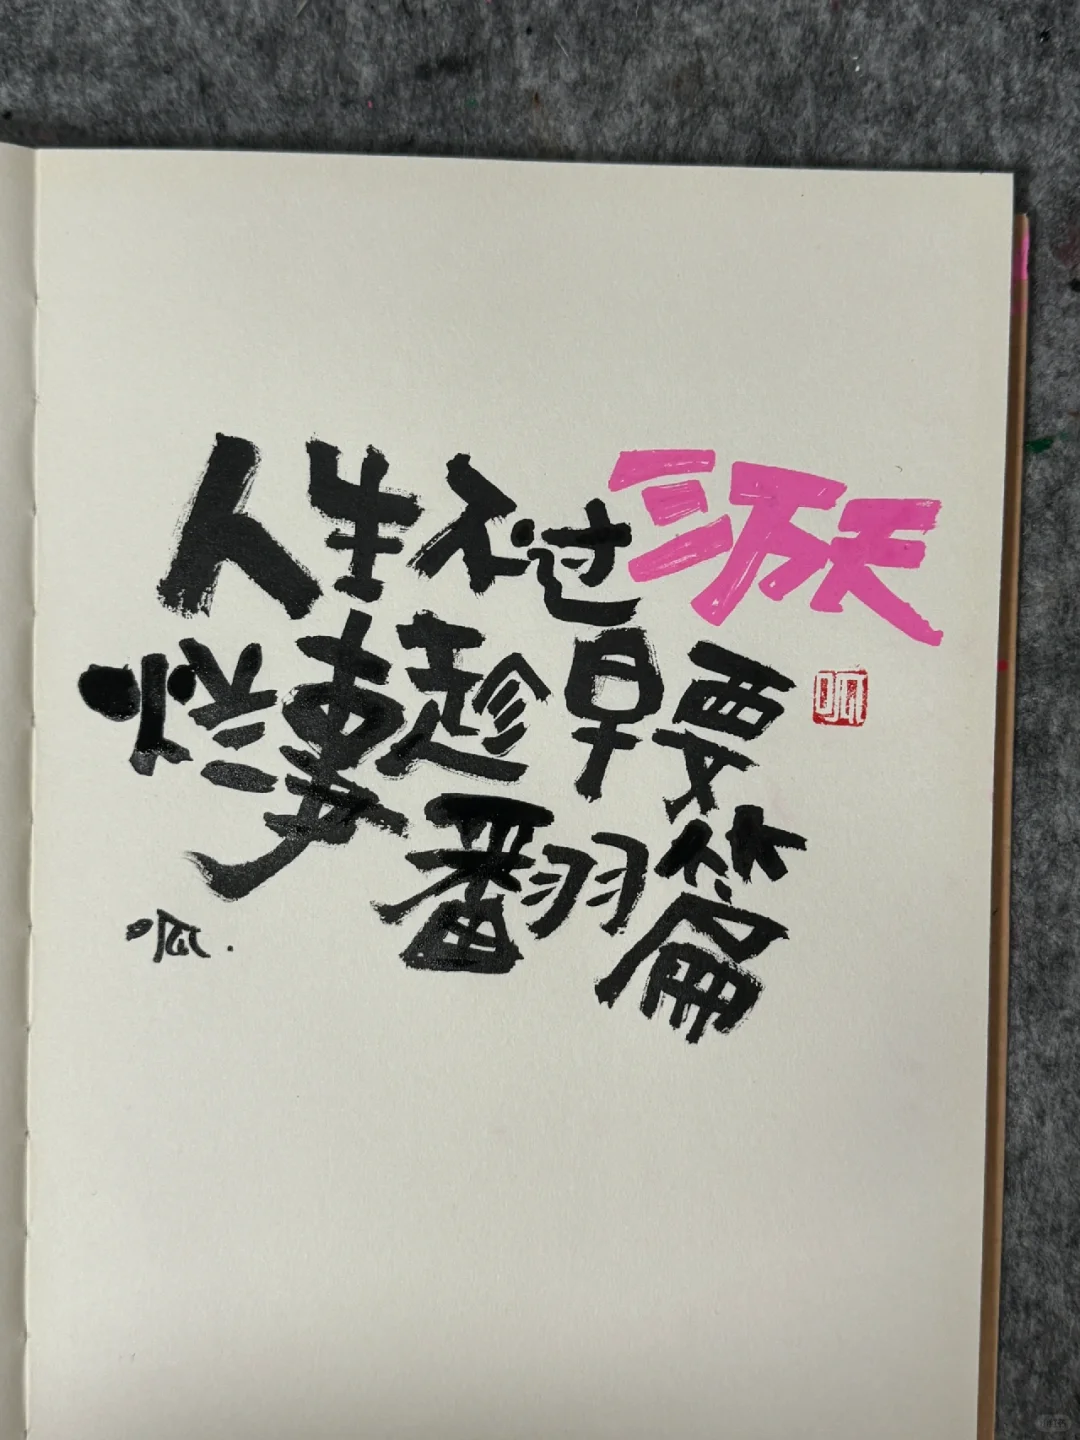 人生不过三万天
烂事趁早要
翻篇
呱
呱.